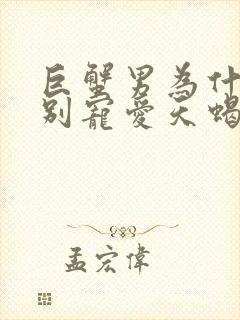 巨蟹男為什
別寵愛天蝎
孟宏偉